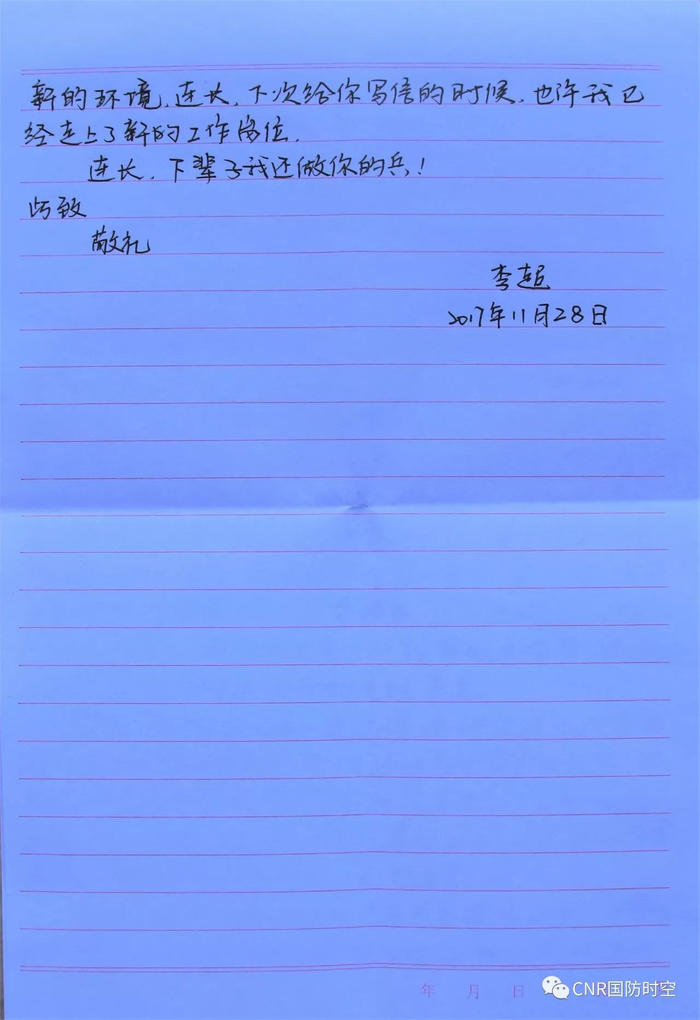 新的环境。连长，下次给你写信的时候，也许我已
经走上了新的工作岗位。
连长，下辈子我还做你的兵！
此致
敬礼
李超
2017年11月28日
年 月 日
CNR国防时空